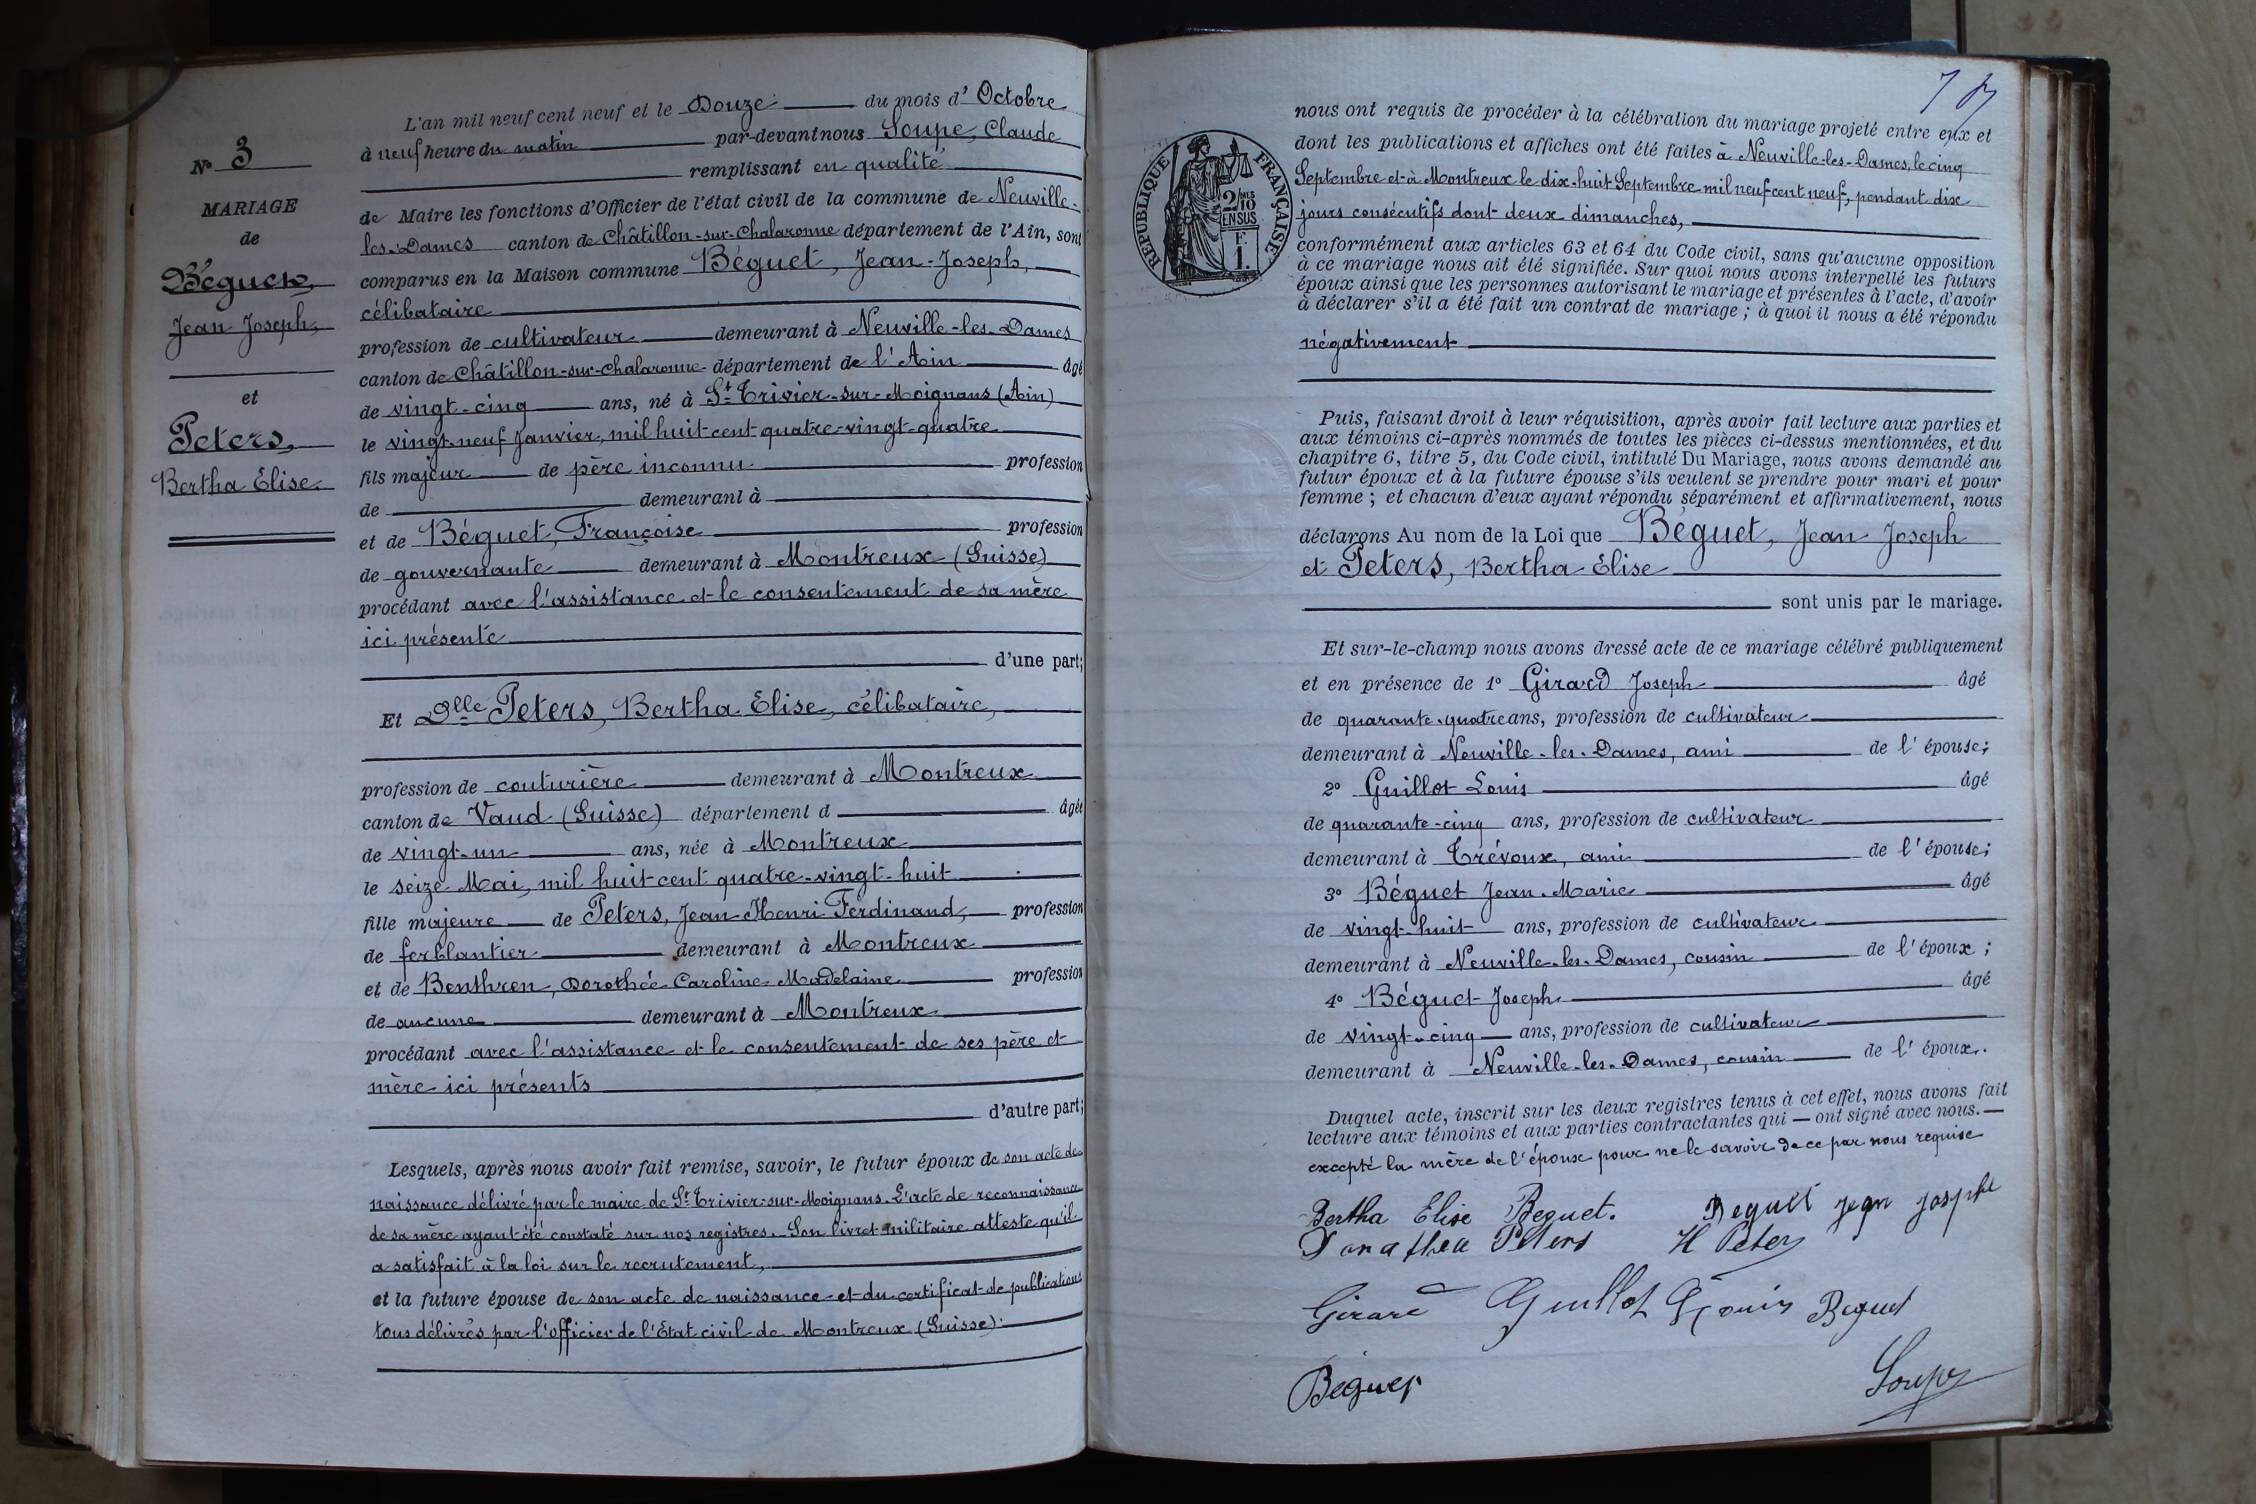 N° 3
MARIAGE
de
Béguet,
Jean Joseph,
et
Peters,
Bertha Élise.
L'an mil neuf cent neuf et le Douze du mois d'Octobre
à neuf heure du matin par-devant nous Soupe, Claude
remplissant en qualité
de Maire les fonctions d'Officier de l'état civil de la commune de Neuville-
les-Dames canton de Châtillon-sur-Chalaronne département de l'Ain, sont
comparus en la Maison commune Béguet, Jean-Joseph,
célibataire
profession de cultivateur demeurant à Neuville-les-Dames
canton de Châtillon-sur-Chalaronne département de l'Ain âgé
de vingt-cinq ans, né à St Trivier-sur-Moignans (Ain)
le vingt-neuf Janvier, mil huit-cent-quatre-vingt-quatre
fils majeur de père inconnu profession
de demeurant à
et de Béguet, Françoise profession
de gouvernante demeurant à Montreux (Suisse)
procédant avec l'assistance et le consentement de sa mère
ici présente
d'une part;
Et Dlle Peters, Bertha Elise, célibataire,
profession de couturière demeurant à Montreux
canton de Vaud (Suisse) département d âgée
de vingt-un ans, née à Montreux
le seize Mai, mil huit-cent quatre-vingt-huit
fille majeure de Peters, Jean Henri Ferdinand, profession
de ferblantier demeurant à Montreux
et de Benthren, Dorothée Caroline Madelaine profession
de aucune demeurant à Montreux
procédant avec l'assistance et le consentement de ses père et
mère ici présents
d'autre part;
Lesquels, après nous avoir fait remise, savoir, le futur époux de son acte de
naissance délivré par le maire de St Trivier-sur-Moignans. L'acte de reconnaissance
de sa mère ayant été constaté sur nos registres. Son livret militaire atteste qu'il
a satisfait à la loi sur le recrutement,
et la future épouse de son acte de naissance et du certificat de publications
tous délivrés par l'officier de l'État civil de Montreux (Suisse).
RÉPUBLIQUE FRANÇAISE
2/10 EN SUS
F. 1.
nous ont requis de procéder à la célébration du mariage projeté entre eux et
dont les publications et affiches ont été faites à Neuville-les-Dames, le cinq
Septembre et à Montreux le dix-huit Septembre mil neuf cent neuf, pendant dix
jours consécutifs dont deux dimanches,
conformément aux articles 63 et 64 du Code civil, sans qu'aucune opposition
à ce mariage nous ait été signifiée. Sur quoi nous avons interpellé les futurs
époux ainsi que les personnes autorisant le mariage et présentes à l'acte, d'avoir
à déclarer s'il a été fait un contrat de mariage ; à quoi il nous a été répondu
négativement
Puis, faisant droit à leur réquisition, après avoir fait lecture aux parties et
aux témoins ci-après nommés de toutes les pièces ci-dessus mentionnées, et du
chapitre 6, titre 5, du Code civil, intitulé Du Mariage, nous avons demandé au
futur époux et à la future épouse s'ils veulent se prendre pour mari et pour
femme ; et chacun d'eux ayant répondu séparément et affirmativement, nous
déclarons Au nom de la Loi que Béguet, Jean Joseph
et Peters, Bertha Élise
sont unis par le mariage.
Et sur-le-champ nous avons dressé acte de ce mariage célébré publiquement
et en présence de 1° Girard Joseph âgé
de quarante-quatre ans, profession de cultivateur
demeurant à Neuville-les-Dames, ami de l'épouse;
2° Guillot Louis âgé
de quarante-cinq ans, profession de cultivateur
demeurant à Trévoux, ami de l'épouse;
3° Béguet Jean-Marie âgé
de vingt-huit ans, profession de cultivateur
demeurant à Neuville-les-Dames, cousin de l'époux ;
4° Béguet Joseph âgé
de vingt-cinq ans, profession de cultivateur
demeurant à Neuville-les-Dames, cousin de l'époux.
Duquel acte, inscrit sur les deux registres tenus à cet effet, nous avons fait
lecture aux témoins et aux parties contractantes qui — ont signé avec nous. —
excepté la mère de l'époux pour ne le savoir de ce par nous requise
Bertha Elise Beguet. Beguet jean josphe
Dorathea Peters H Peters
Girard Guillot Louis Beguet
Béguet Soupe